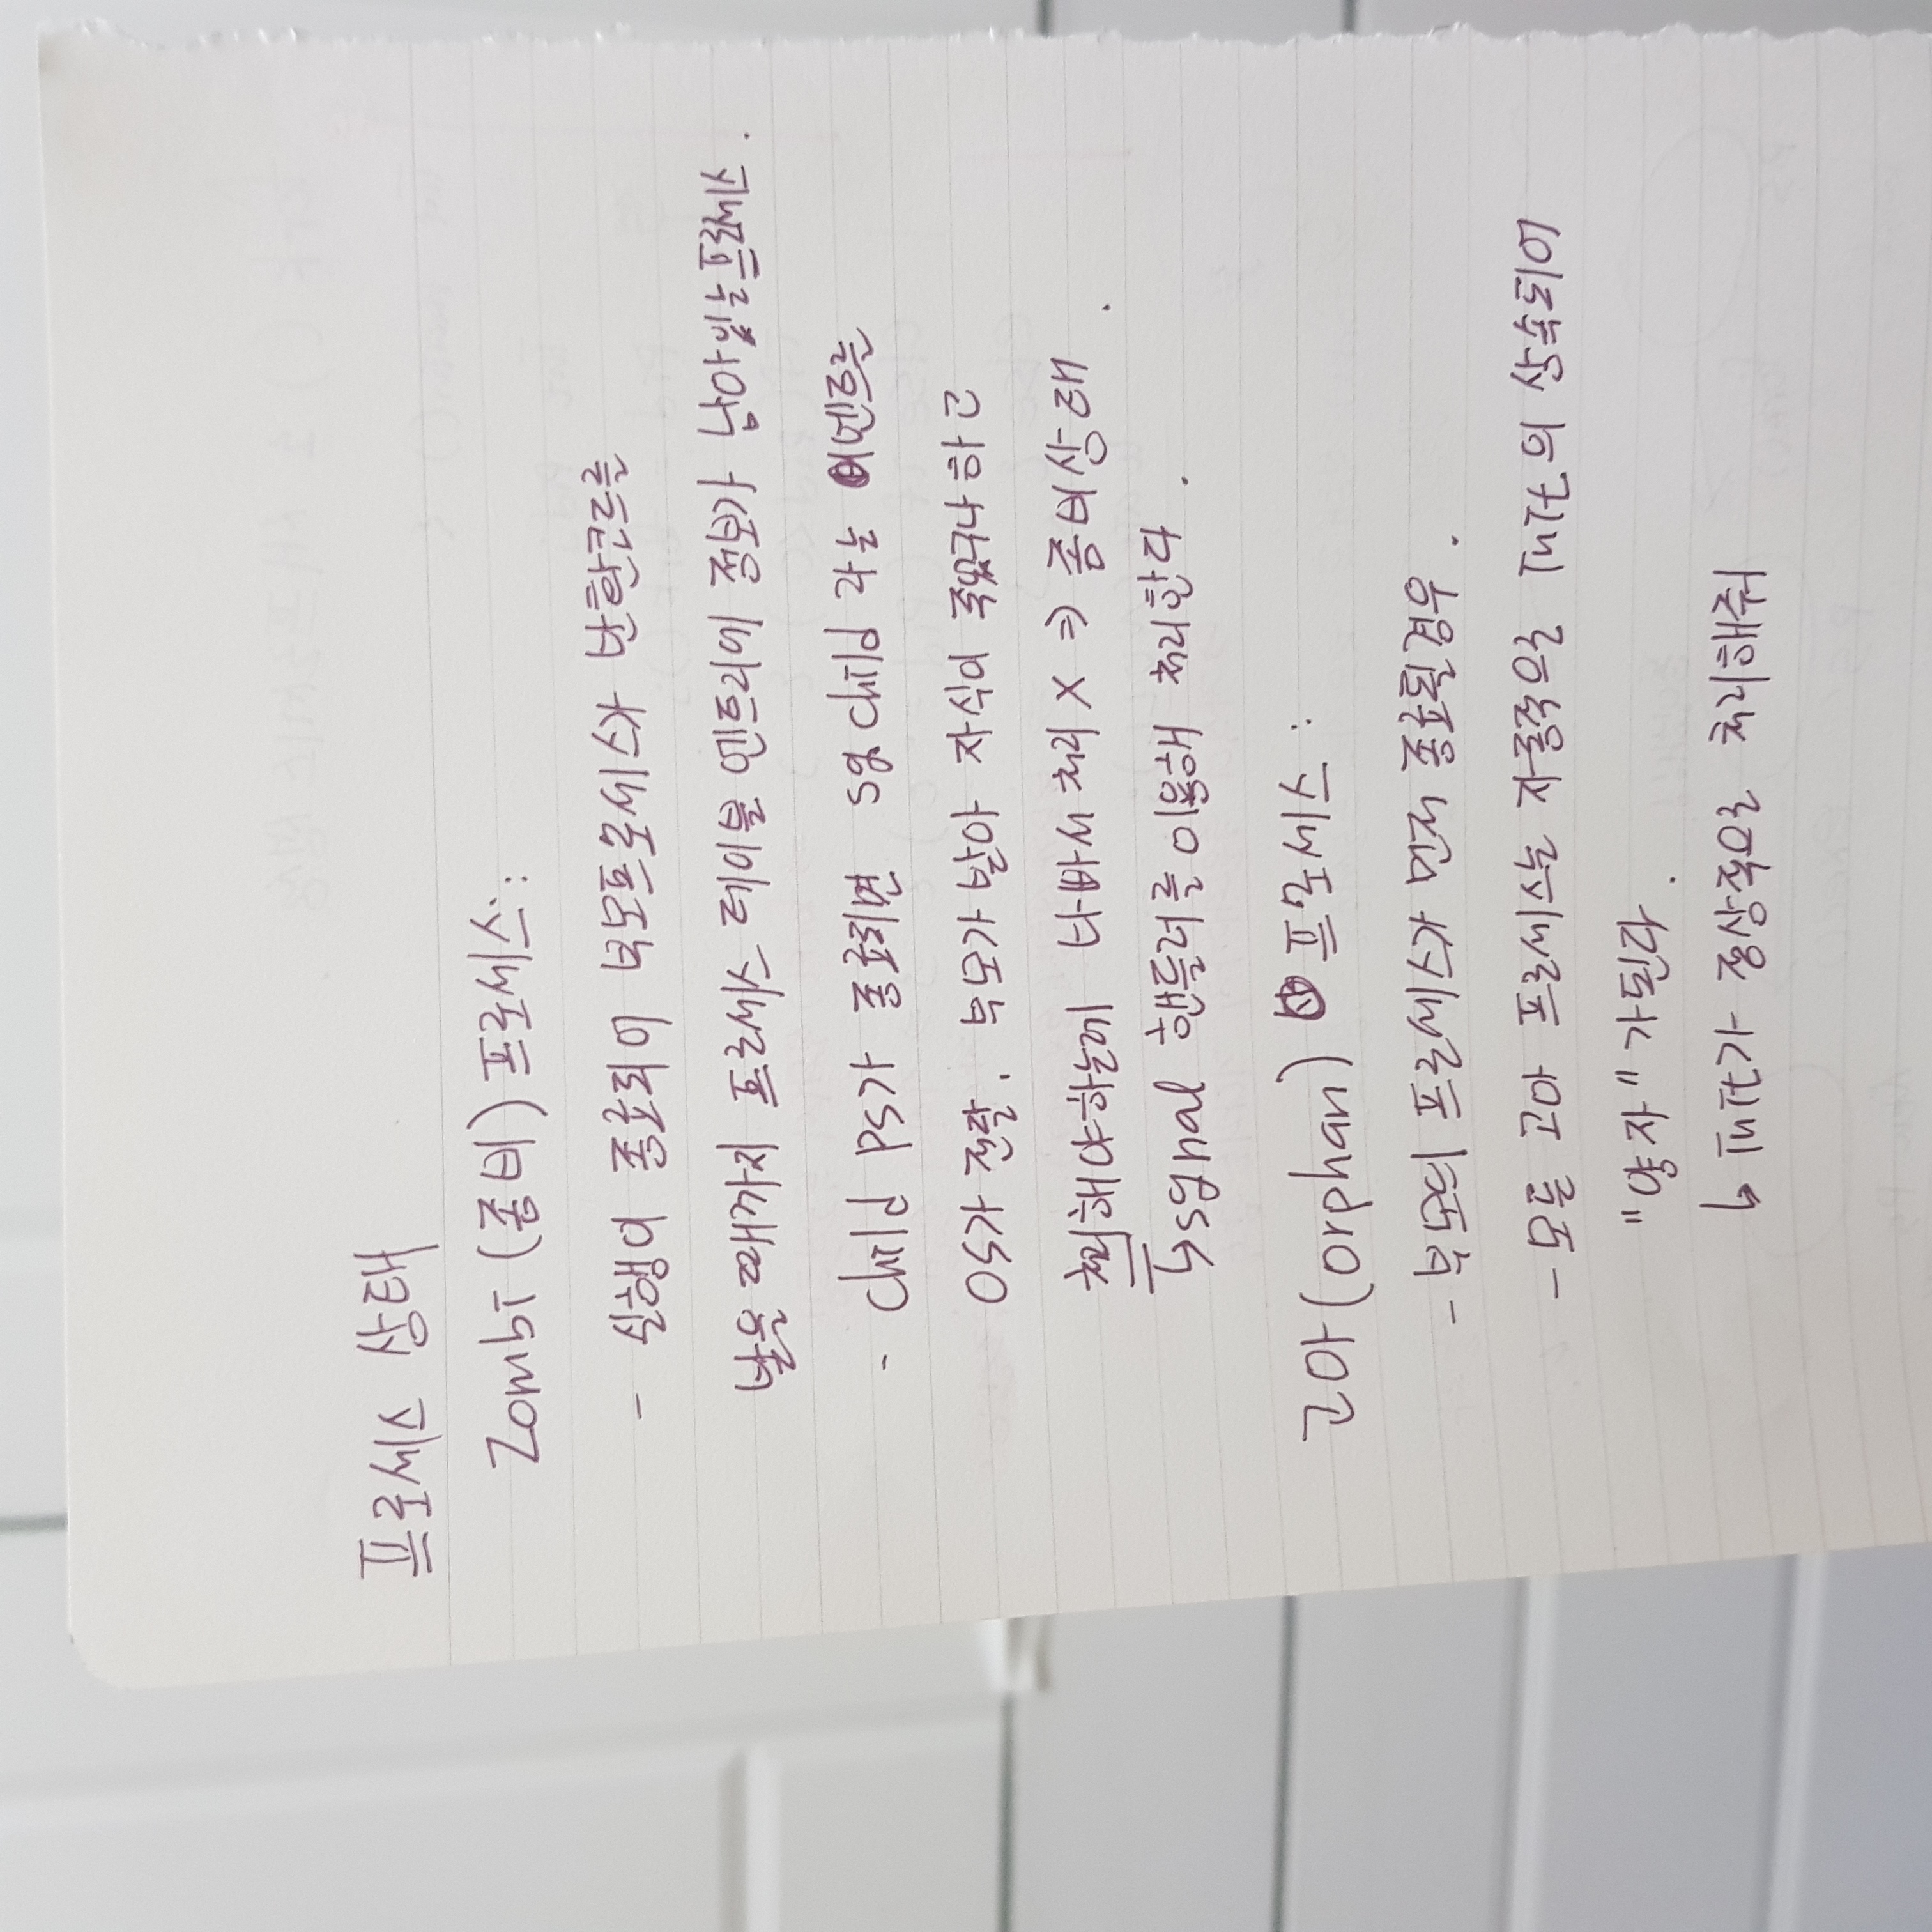 프로세스 상태
Zombi (좀비) 프로세스:
- 실행이 종료되어 부모프로세스가 반환코드를
받을 때까지 프로세스 테이블 엔트리에 정보가 남아있는프로세스.
- child ps가 종료되면 sig child 라는 이벤트를
OS가 전달. 부모가 받아 자식이 죽었구나 하고
처리해야하는데 바빠서 처리 X ⇒ 좀비상태.
↳ signal 핸들러를 이용해 처리한다.
고아(orphan) 프로세스:
- 부모의 프로세스가 먼저 종료될경우.
- 모든 고아 프로세스는 자동적으로 init의 상속되어
"양자"가된다.
↳ init가 정상적으로 처리해줘